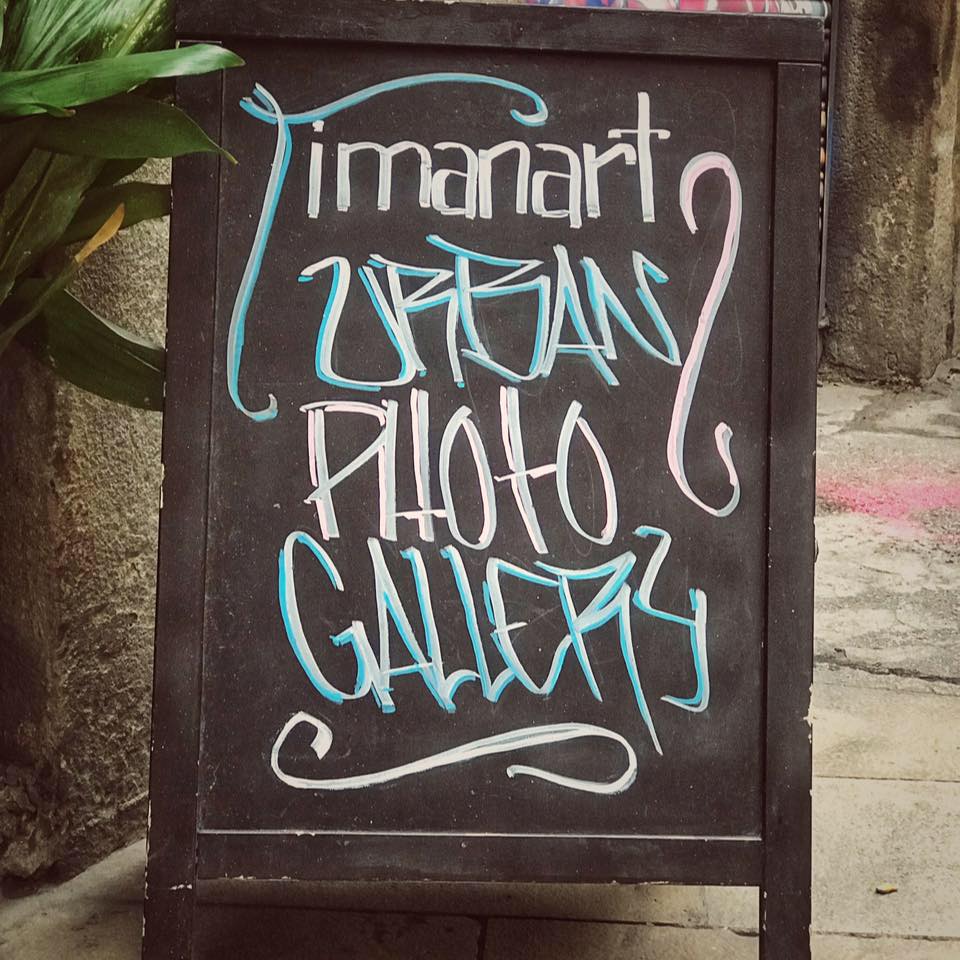 Timanart
URBAN
PHOTO
GALLERY